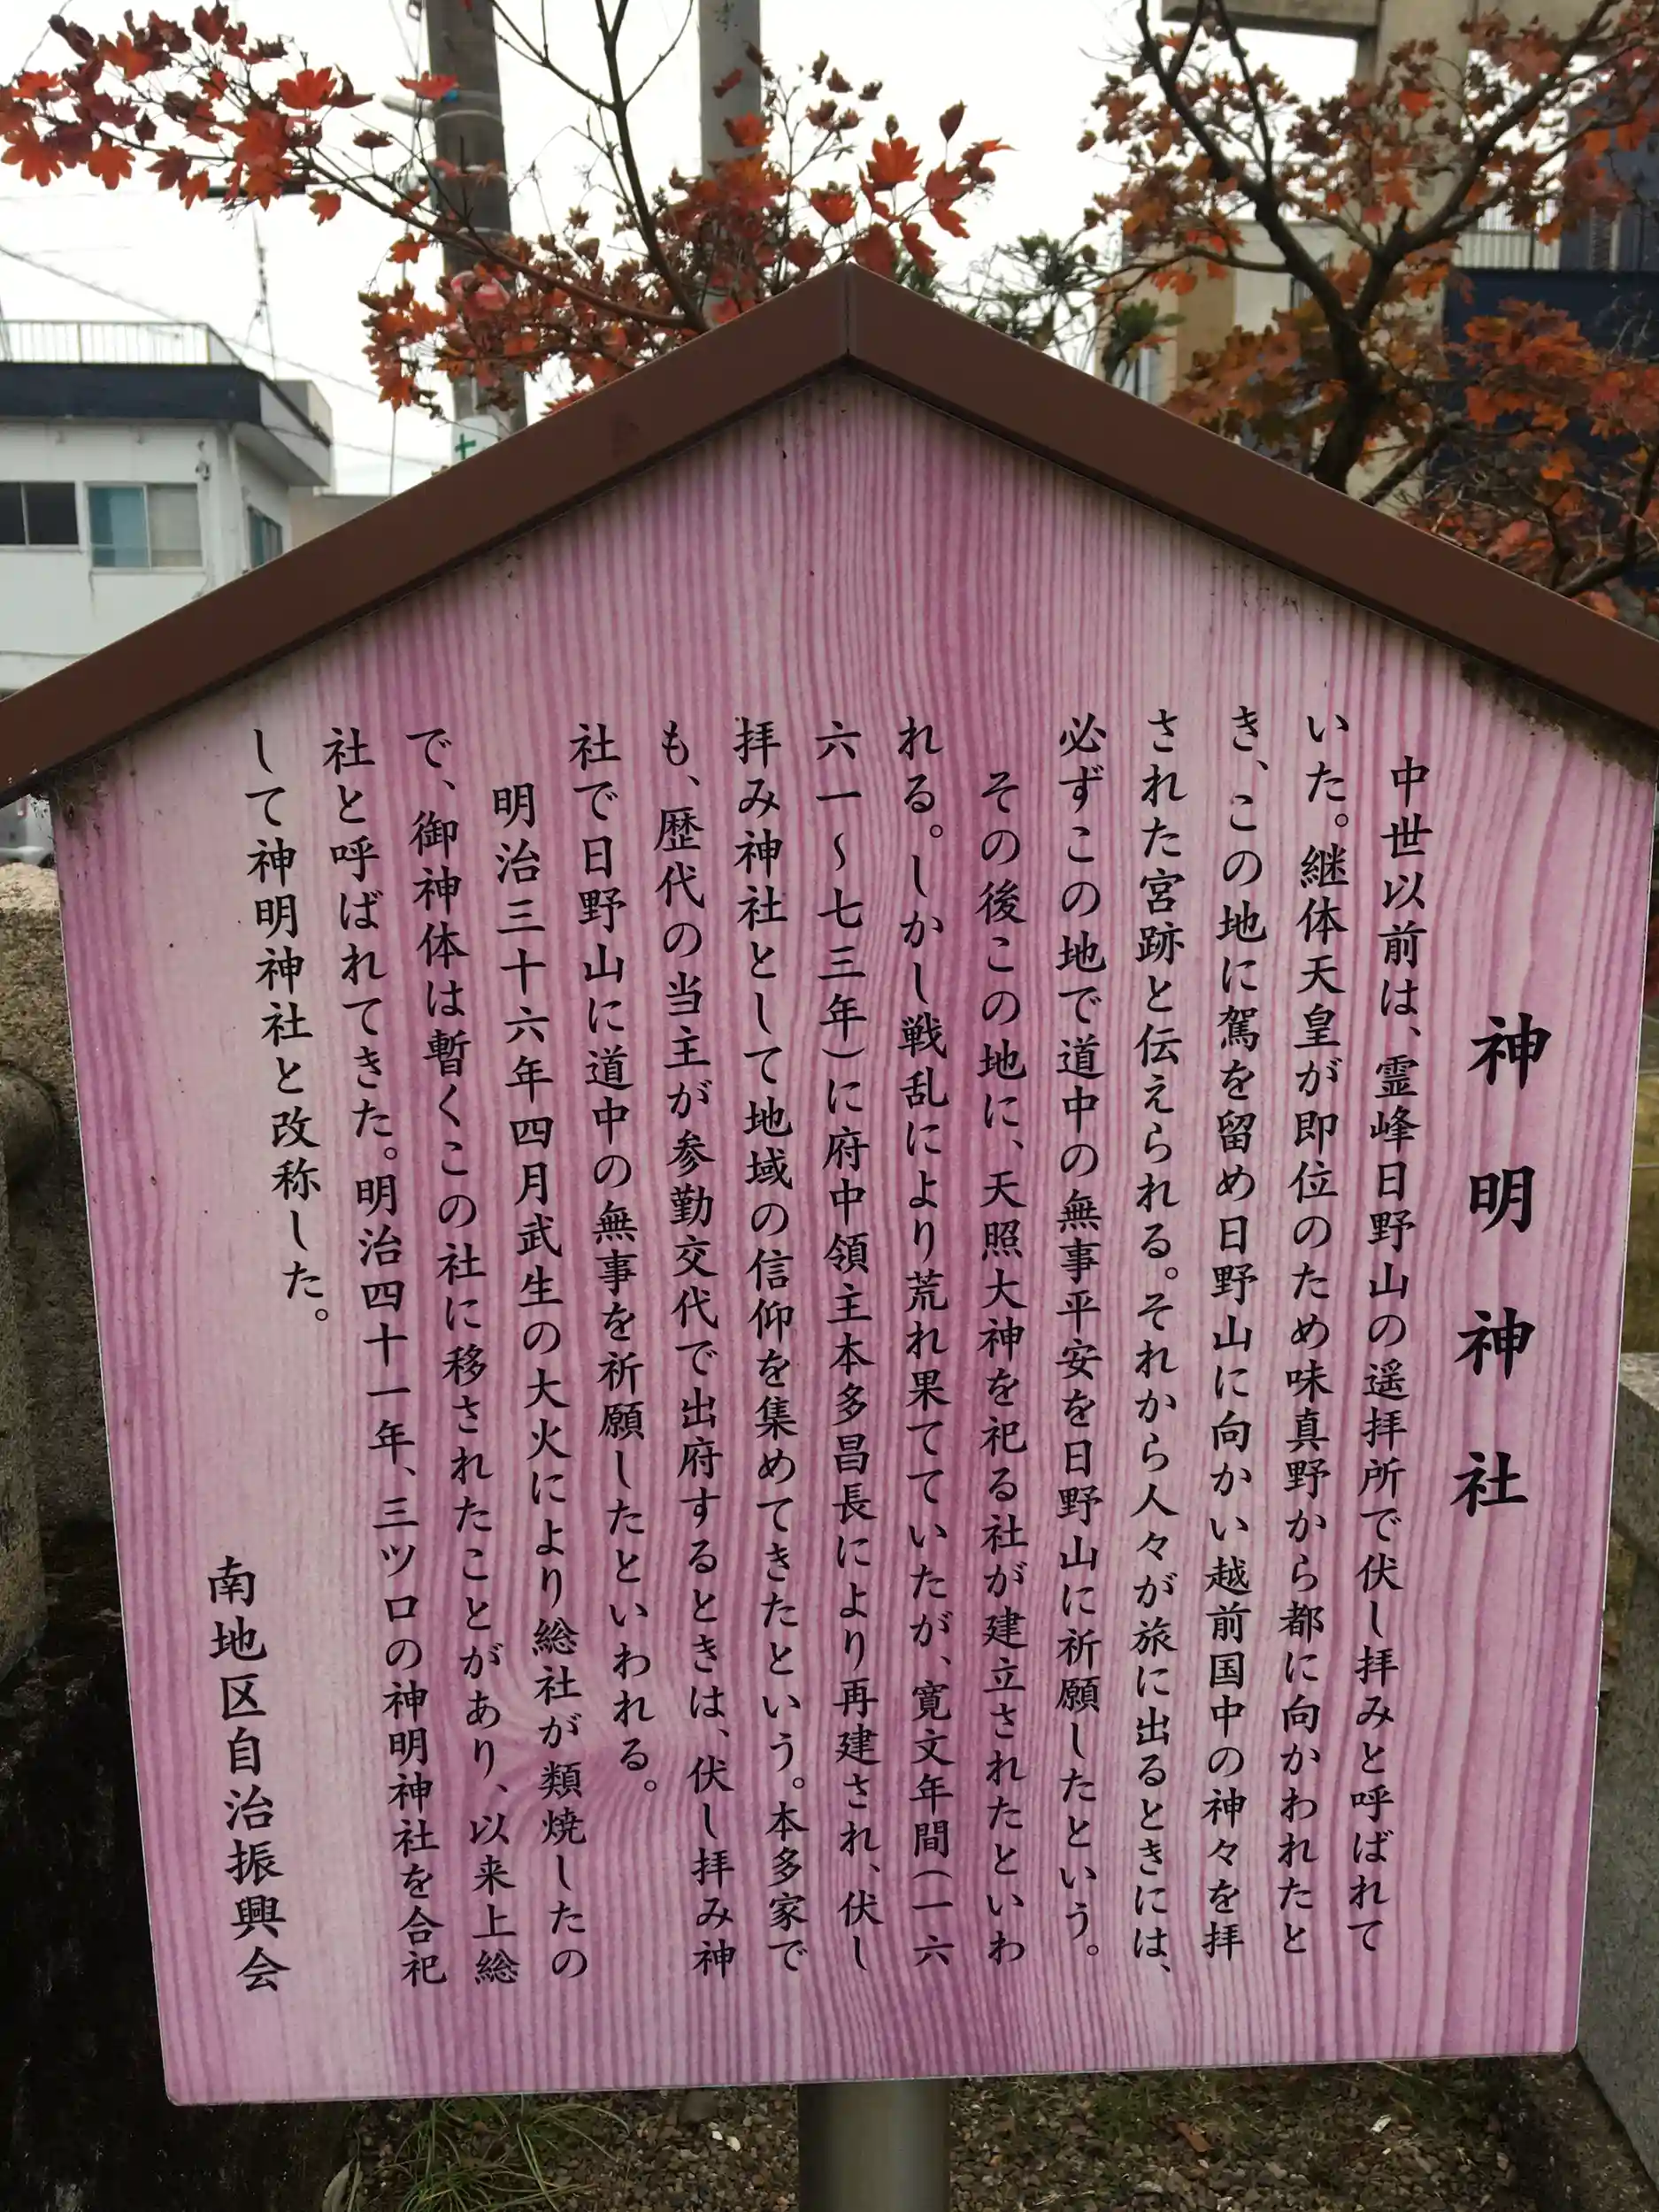 神明神社
中世以前は、霊峰日野山の遥拝所で伏し拝みと呼ばれて
いた。継体天皇が即位のため味真野から都に向かわれたと
き、この地に駕を留め日野山に向かい越前国中の神々を拝
された宮跡と伝えられる。それから人々が旅に出るときには、
必ずこの地で道中の無事平安を日野山に祈願したという。
その後この地に、天照大神を祀る社が建立されたといわ
れる。しかし戦乱により荒れ果てていたが、寛文年間(一六
六一～七三年)に府中領主本多昌長により再建され、伏し
拝み神社として地域の信仰を集めてきたという。本多家で
も、歴代の当主が参勤交代で出府するときは、伏し拝み神
社で日野山に道中の無事を祈願したといわれる。
明治三十六年四月武生の大火により総社が類焼したの
で、御神体は暫くこの社に移されたことがあり、以来上総
社と呼ばれてきた。明治四十一年、三ツ口の神明神社を合祀
して神明神社と改称した。
南地区自治振興会